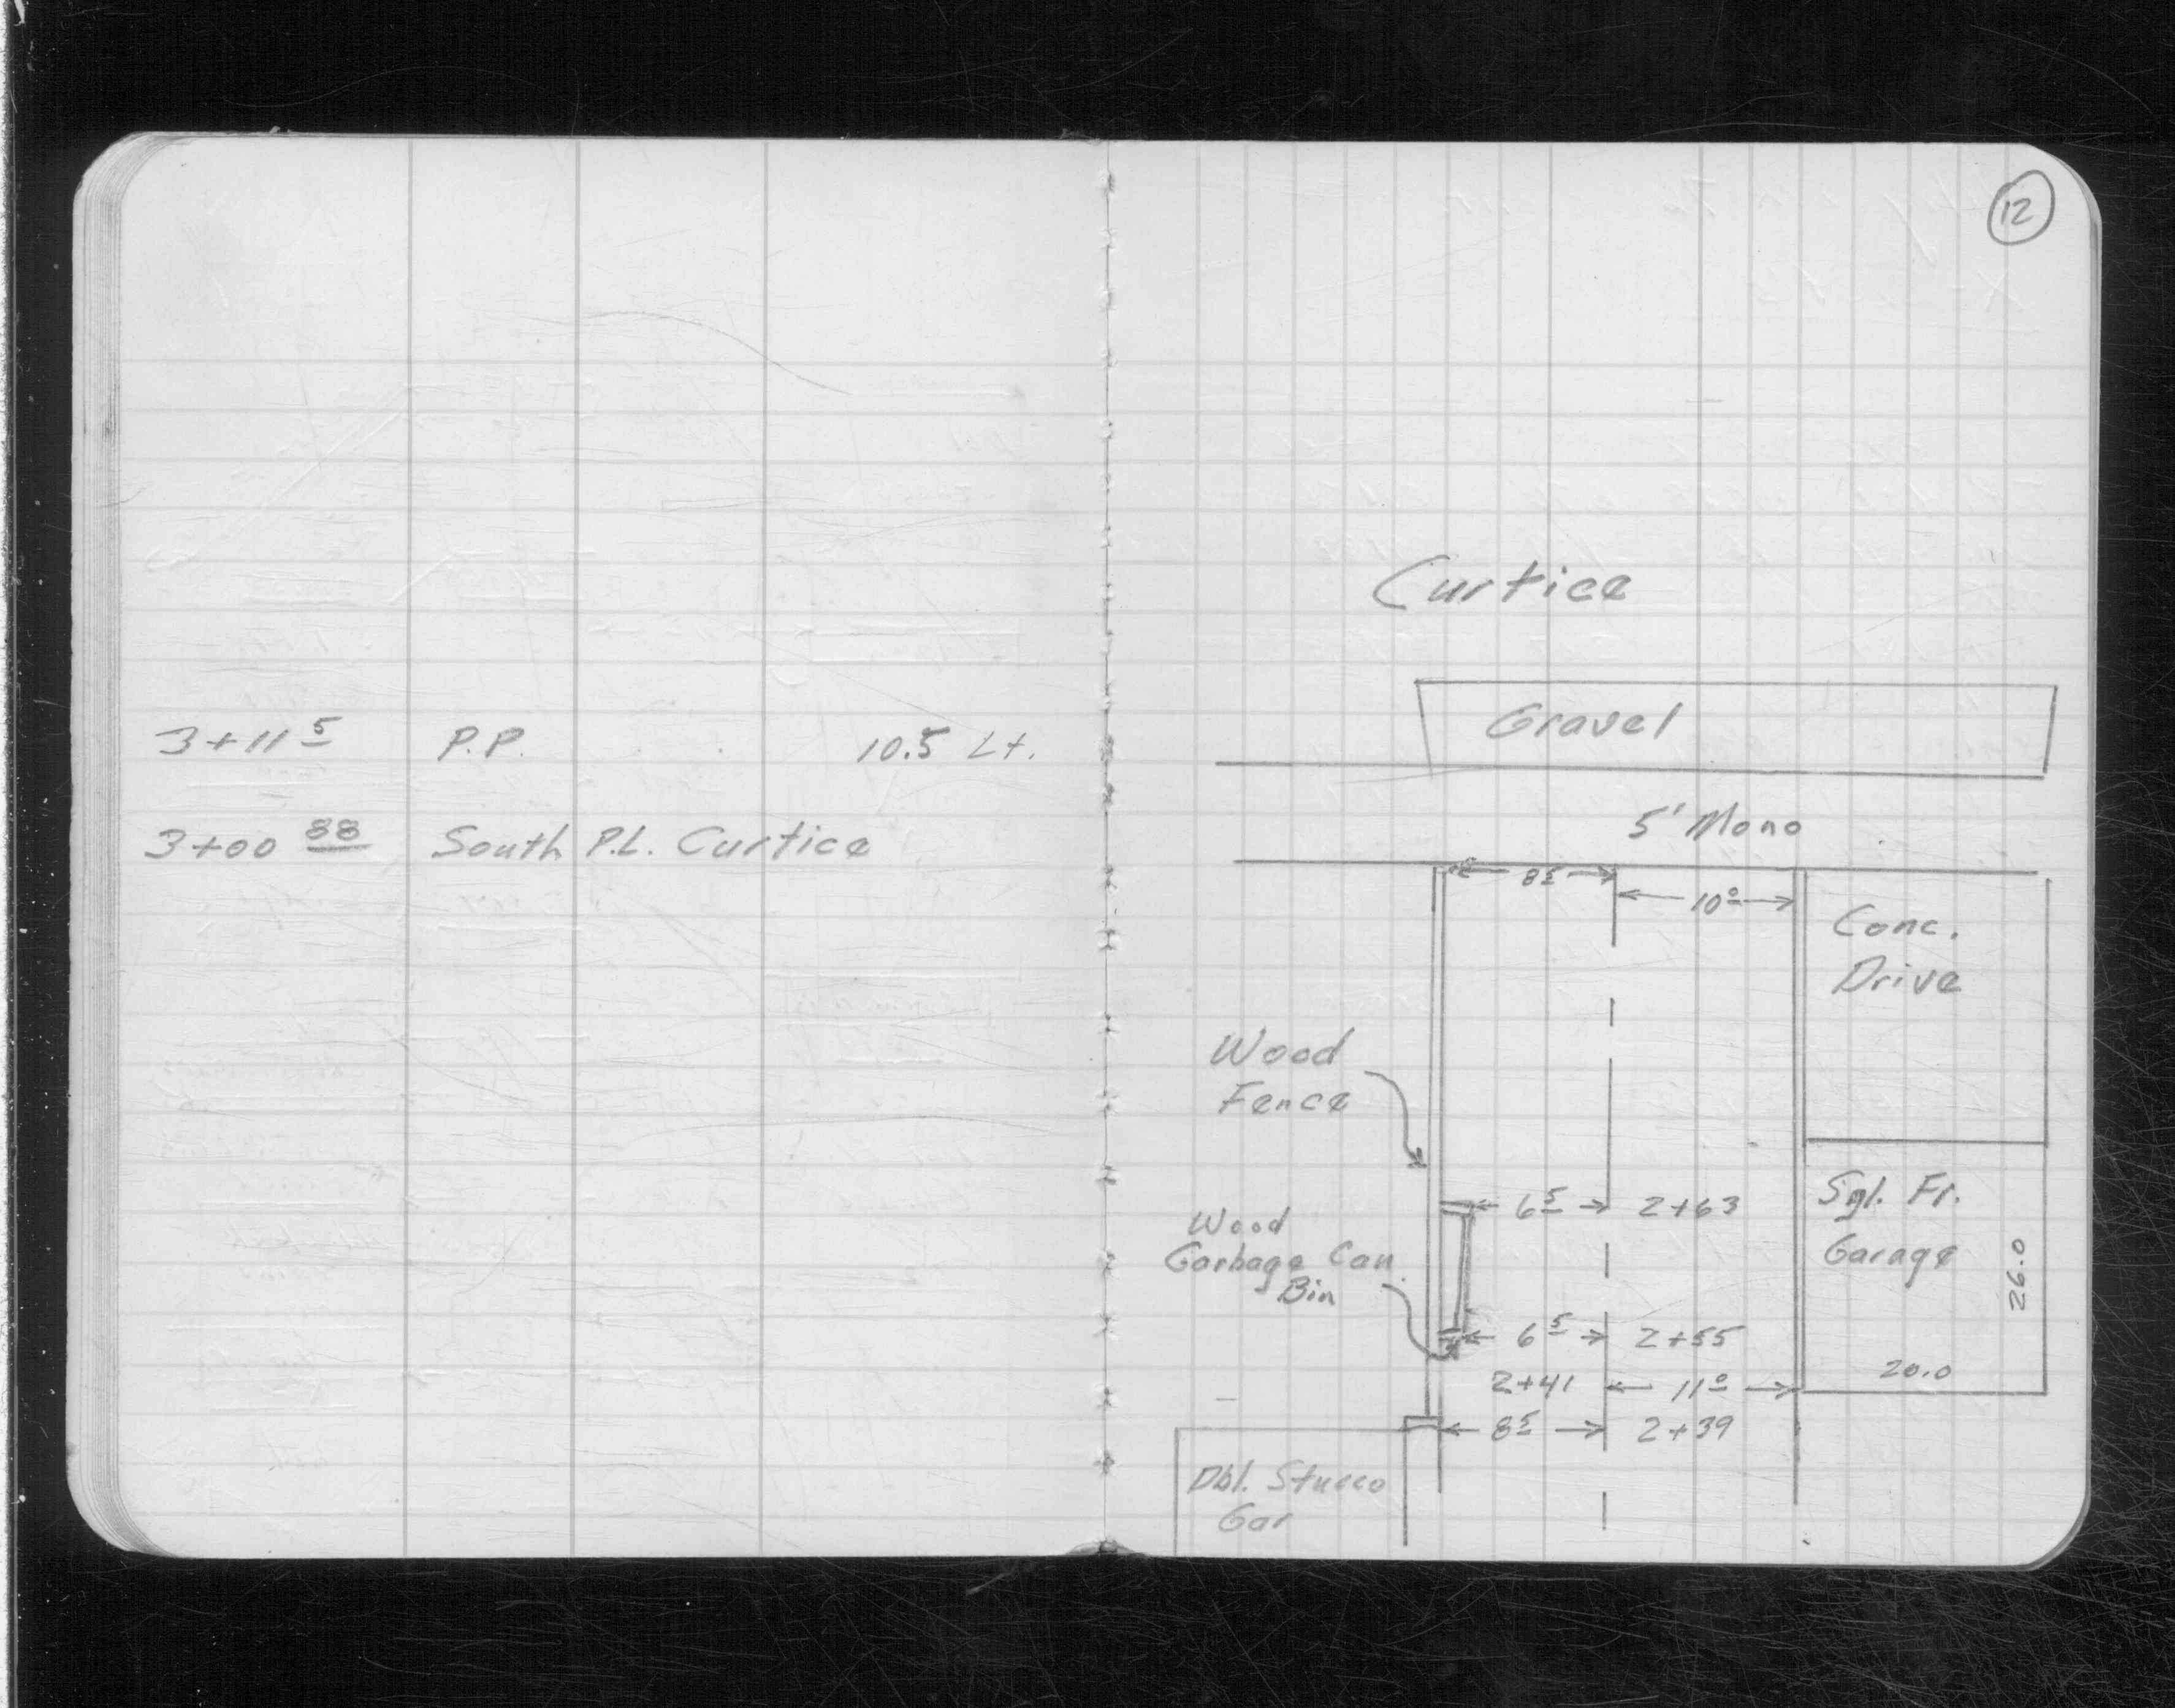 3+11 5 P.P. 10.5 Lt.
3+00 88 South P.L. Curtice
12
Curtice
Gravel
5' Mono
8 5
10 0
Conc.
Drive
Wood
Fence
6 5 2+63
Sgl. Fr.
Garage
26.0
20.0
Wood
Garbage Can
Bin
6 5 2+55
2+41 11 0
8 5 2+39
Dbl. Stucco
Gar